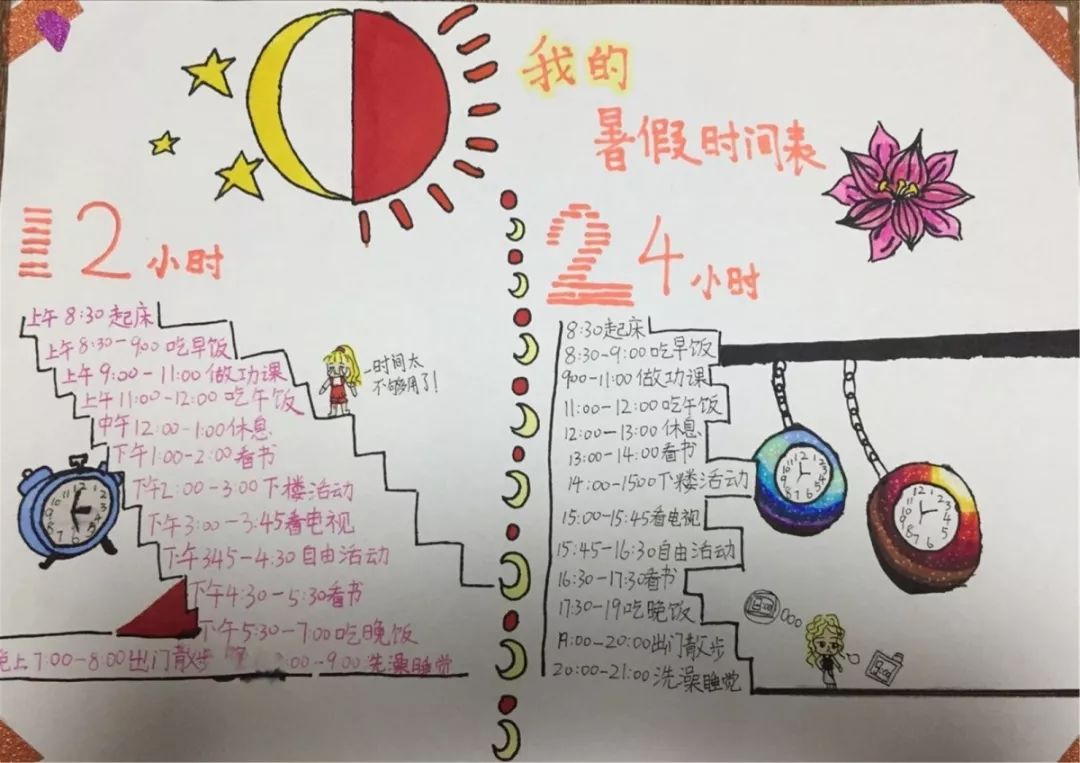 我的
暑假时间表
12小时
上午8:30起床
上午8:30-900吃早饭
上午9:00-11:00做功课
上午11:00-12:00吃午饭
中午12:00-1:00休息
下午1:00-2:00看书
下午2:00-3:00下楼活动
下午3:00-3:45看电视
下午345-4:30自由活动
下午4:30-5:30看书
下午5:30-7:00吃晚饭
晚上7:00-8:00出门散步
:00-9:00洗澡睡觉
时间太
不够用了!
24小时
8:30起床
8:30-9:00吃早饭
900-11:00做功课
11:00-12:00吃午饭
12:00-13:00休息
13:00-14:00看书
14:00-1500下楼活动
15:00-15:45看电视
15:45-16:30自由活动
16:30-17:30看书
17:30-19吃晚饭
19:00-20:00出门散步
20:00-21:00洗澡睡觉
12 1 2 3 4 5 6 7 8 9 10 11
12 1 2 3 4 5 6 7 8 9 10 11
12 1 2 3 4 5 6 7 8 9 10 11